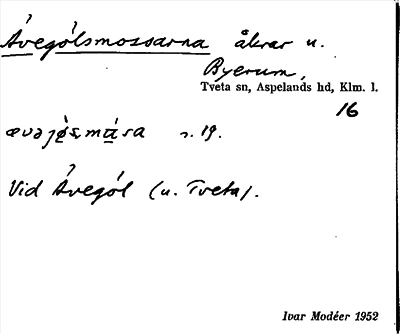 Ávególsmossarna åkrar u.
Byerum,
Tveta sn, Aspelands hd, Klm. l.
16
s. 19.
Vid Ávegól (u. Tveta).
Ivar Modéer 1952